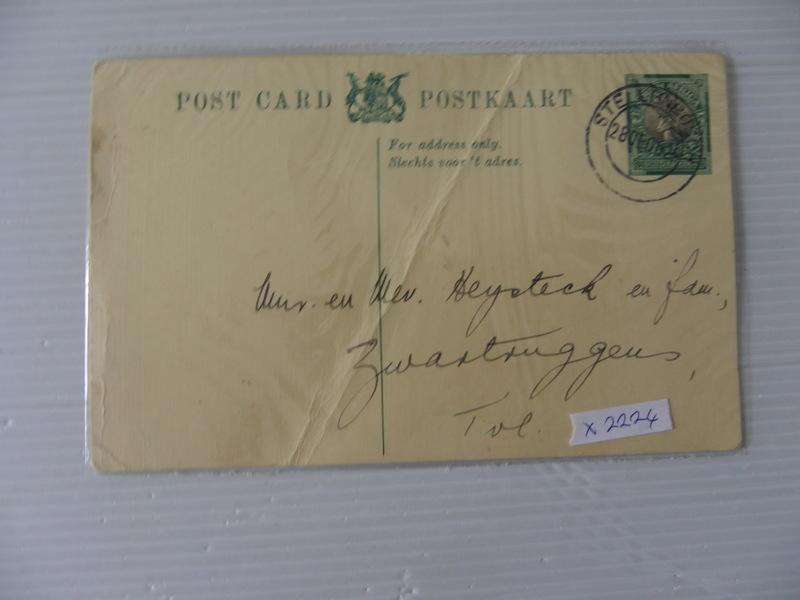 POST CARD POSTKAART
For address only.
Slechts voor 't adres.
Mnr. en Mev. Heysteck en fam.,
Zwartruggens,
Tvl.
x 2224